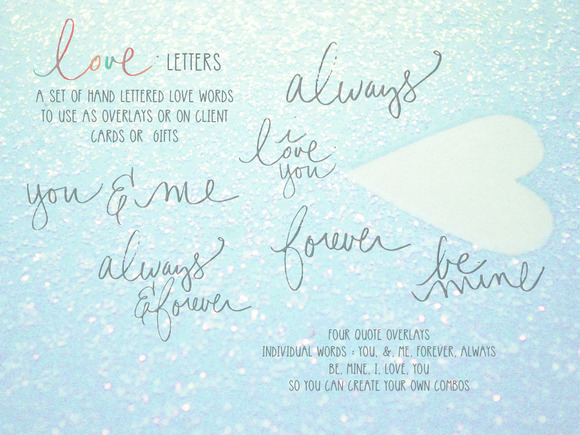 love LETTERS
A SET OF HAND LETTERED LOVE WORDS
TO USE AS OVERLAYS OR ON CLIENT
CARDS OR GIFTS
always
i
love
you
you & me
forever
always
& forever
be
mine
FOUR QUOTE OVERLAYS
INDIVIDUAL WORDS : YOU, &, ME, FOREVER, ALWAYS
BE, MINE, I, LOVE, YOU
SO YOU CAN CREATE YOUR OWN COMBOS